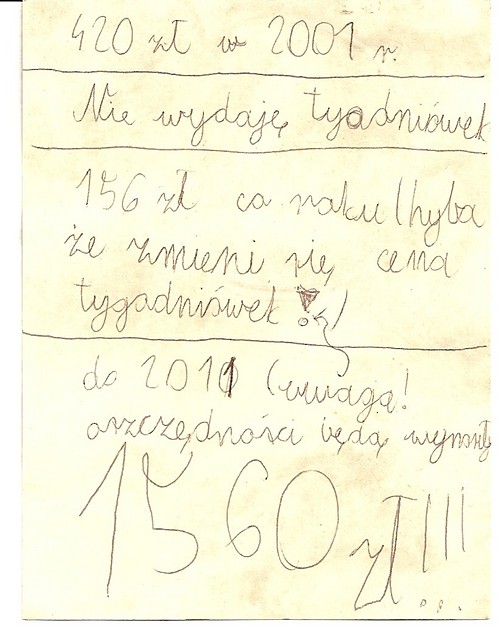 420 zł w 2001 r.
Nie wydaję tygadniówek
156 zł co roku (hyba
że zmieni się cena
tygadniówek!)
do 2011 (uwaga!
oszczędności będą wynosiły
1560 zł!!!